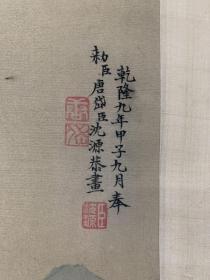 乾隆九年甲子九月奉
勅臣唐岱臣沈源恭畫